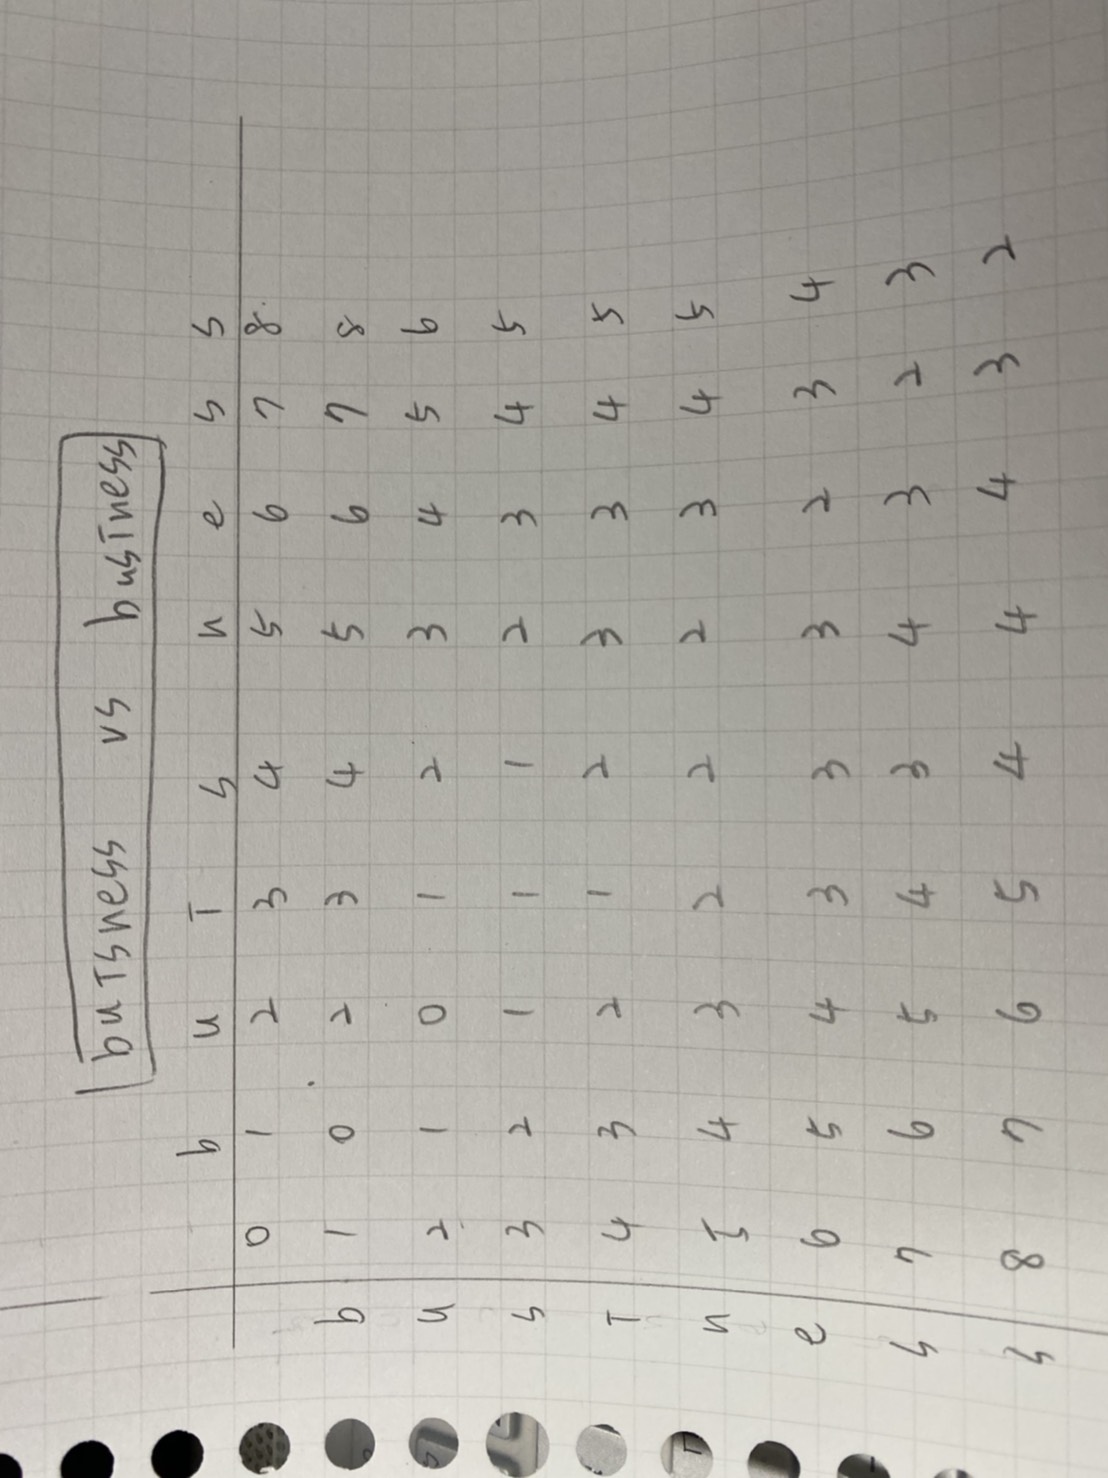 buisness vs business
b u i s n e s s
0 1 2 3 4 5 6 7 8
b 1 0 2 3 4 5 6 7 8
u 2 1 0 1 2 3 4 5 6
s 3 2 1 1 1 2 3 4 5
i 4 3 2 1 2 3 3 4 5
n 5 4 3 2 2 2 3 4 5
e 6 5 4 3 3 3 2 3 4
s 7 6 5 4 3 4 3 2 3
s 8 7 6 5 4 4 4 3 2